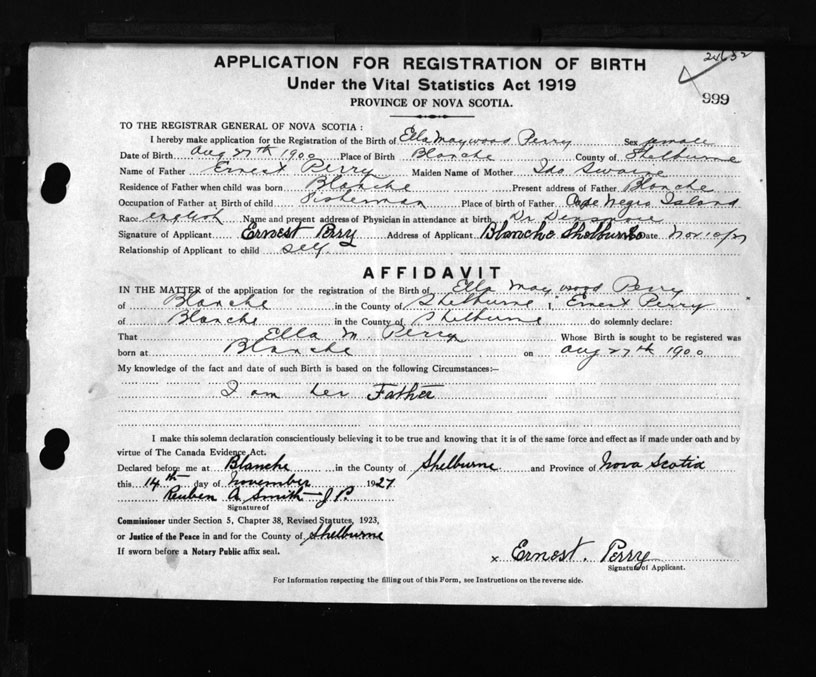 24632
APPLICATION FOR REGISTRATION OF BIRTH
Under the Vital Statistics Act 1919
999
PROVINCE OF NOVA SCOTIA.
TO THE REGISTRAR GENERAL OF NOVA SCOTIA:
I hereby make application for the Registration of the Birth of Ella Maywood Perry Sex female
Date of Birth Aug 27th 1900 Place of Birth Blanche County of Shelburne
Name of Father Ernest Perry Maiden Name of Mother Ida Swaine
Residence of Father when child was born Blanche Present address of Father Blanche
Occupation of Father at Birth of child Fisherman Place of birth of Father Cape Negro Island
Race english Name and present address of Physician in attendance at birth Dr Densmore
Signature of Applicant Ernest Perry Address of Applicant Blanche Shelburne Date Nov 10/27
Relationship of Applicant to child self
AFFIDAVIT
IN THE MATTER of the application for the registration of the Birth of Ella May wood Perry
of Blanche in the County of Shelburne i Ernest Perry
of Blanche in the County of Shelburne do solemnly declare:
That Ella M. Perry Whose Birth is sought to be registered was
born at Blanche on Aug 27th 1900
My knowledge of the fact and date of such Birth is based on the following Circumstances:—
I am her Father
I make this solemn declaration conscientiously believing it to be true and knowing that it is of the same force and effect as if made under oath and by
virtue of The Canada Evidence Act.
Declared before me at Blanche in the County of Shelburne and Province of Nova Scotia
this 14th day of November 1927
Reuben A Smith J P.
Signature of
Commissioner under Section 5, Chapter 38, Revised Statutes, 1923,
or Justice of the Peace in and for the County of Shelburne
If sworn before a Notary Public affix seal.
x Ernest. Perry
Signature of Applicant.
For Information respecting the filling out of this Form, see Instructions on the reverse side.